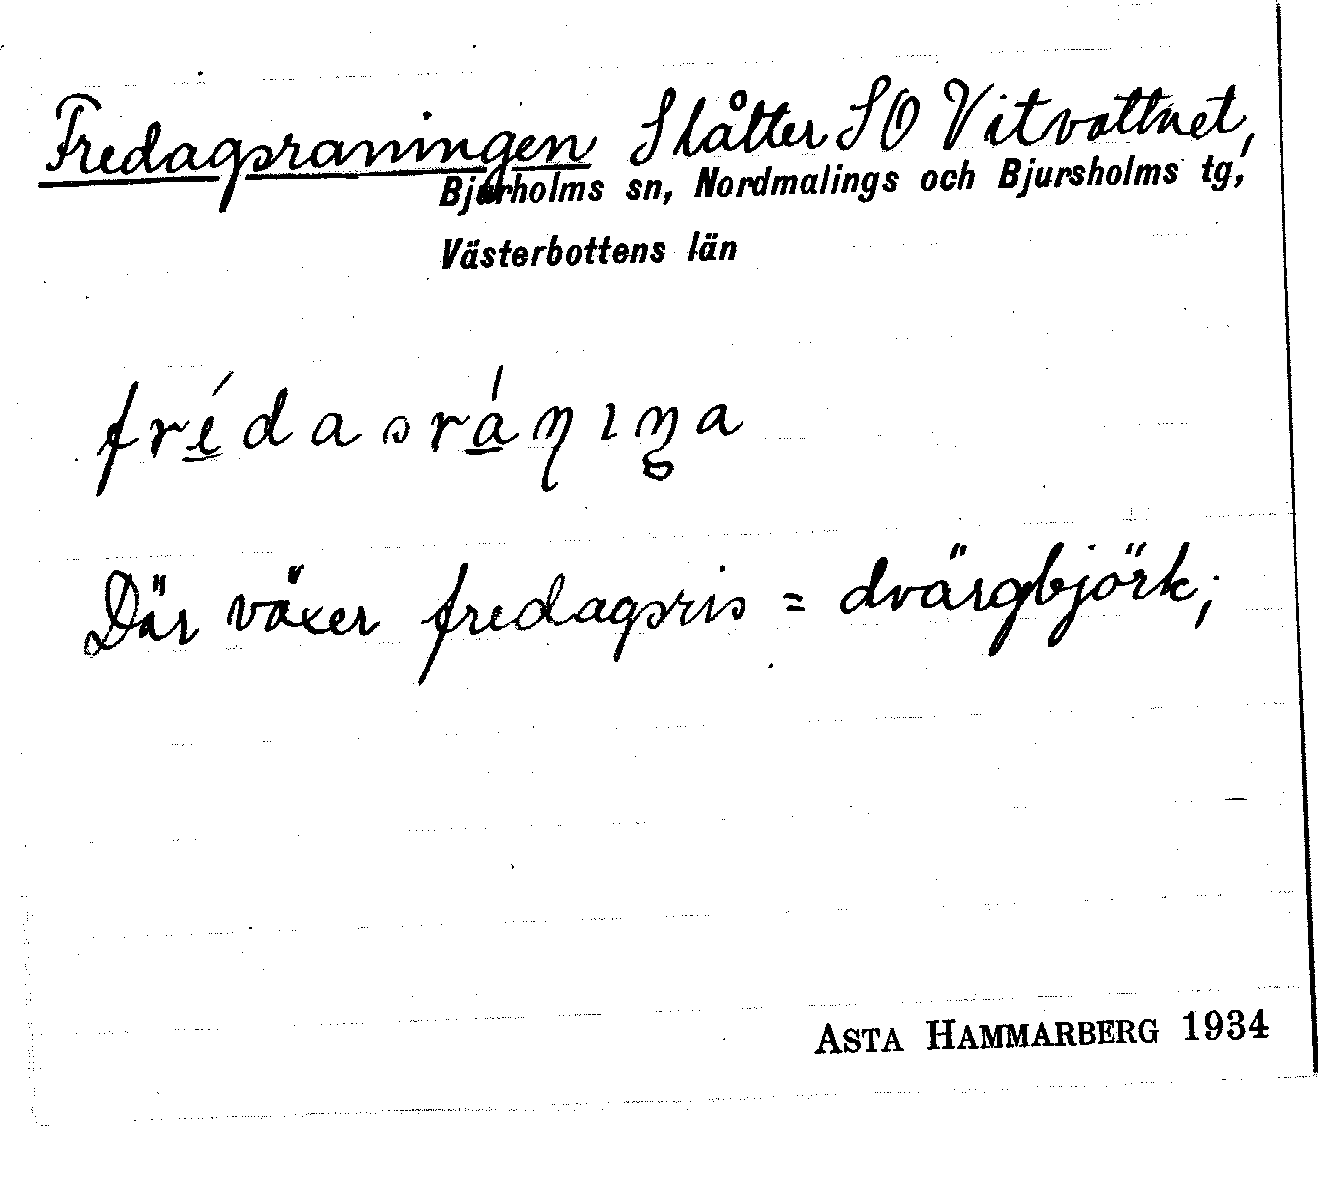 Fredagsraningen Slåtter SO Vitvattnet,
Bjurholms sn, Nordmalings och Bjursholms tg,
Västerbottens län
frédasráƞıŋa
Där växer fredagsris = dvärgbjörk;
ASTA HAMMARBERG 1934